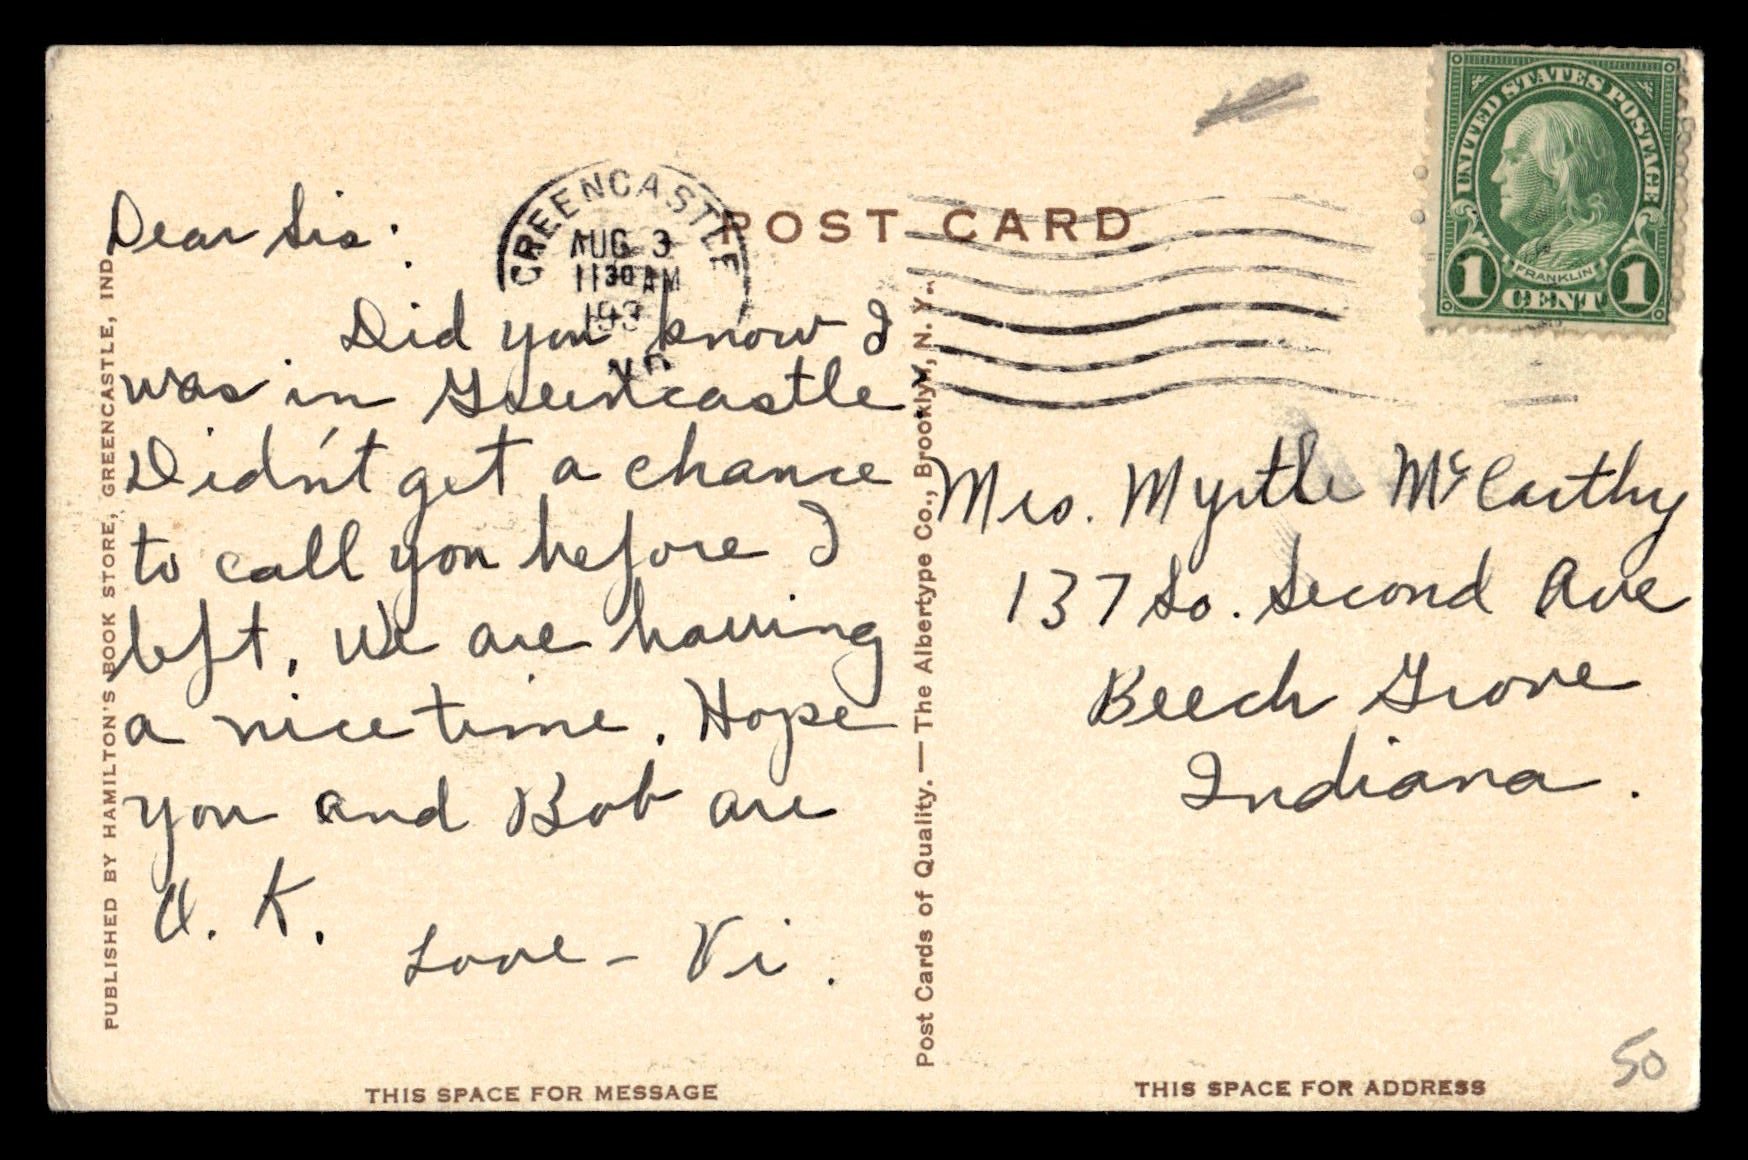 POST CARD
GREENCASTLE
AUG 3
11 30 AM
193
UNITED STATES POSTAGE
FRANKLIN
1 CENT 1
Dear Sis:
Did you know I
was in Greencastle
Didn't get a chance
to call you before I
left. We are having
a nice time. Hope
you and Bob are
O. K.
Love - Vi.
Mrs. Myrtle McCarthy
137 So. Second Ave
Beech Grove
Indiana.
PUBLISHED BY HAMILTON'S BOOK STORE, GREENCASTLE, IND.
Post Cards of Quality. — The Albertype Co., Brooklyn, N. Y.
THIS SPACE FOR MESSAGE
THIS SPACE FOR ADDRESS
50